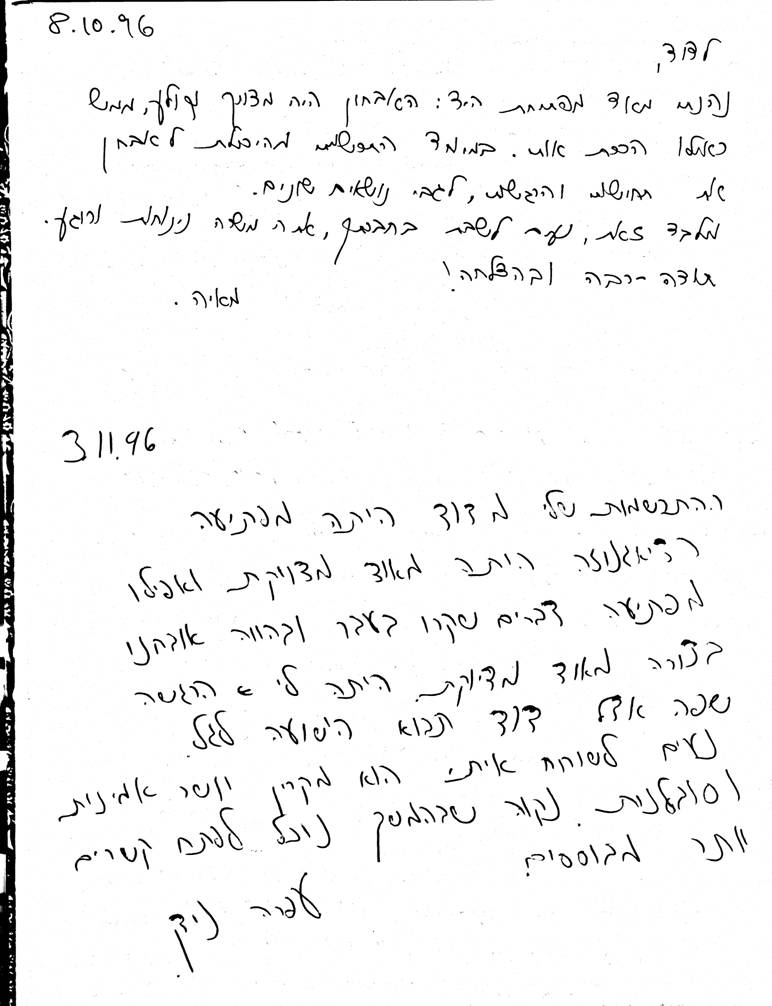 8.10.96
לדוד,
נהנתי מאוד מפתיחת היד: האבחון היה מדויך וקולע, ממש
כאילו הכרת אותי. במיוחד התרשמתי מהיכולת לאבחן
את תחושותי והרגשותי, לגבי נושאים שונים.
מלבד זאת, נעים לשבת בחברתך, אתה משרה נינוחות ורוגע.
תודה רבה ובהצלחה!
מאיה.
3.11.96
ההתרשמות שלי מדוד היתה מפתיעה
הדיאגנוזה היתה מאוד מדויקת ואפילו
מפתיעה דברים שקרו בעבר ובהווה אובחנו
בצורה מאוד מדיוקת. היתה לי הרגשה
שפה אצל דוד תבוא הישועה לגל.
נעים לשוחח איתו. הוא מקרין יושר אמינות
וסובלנות. נקוה שבהמשך נוכל לפתח קשרים
יותר מבוססים.
עפרה